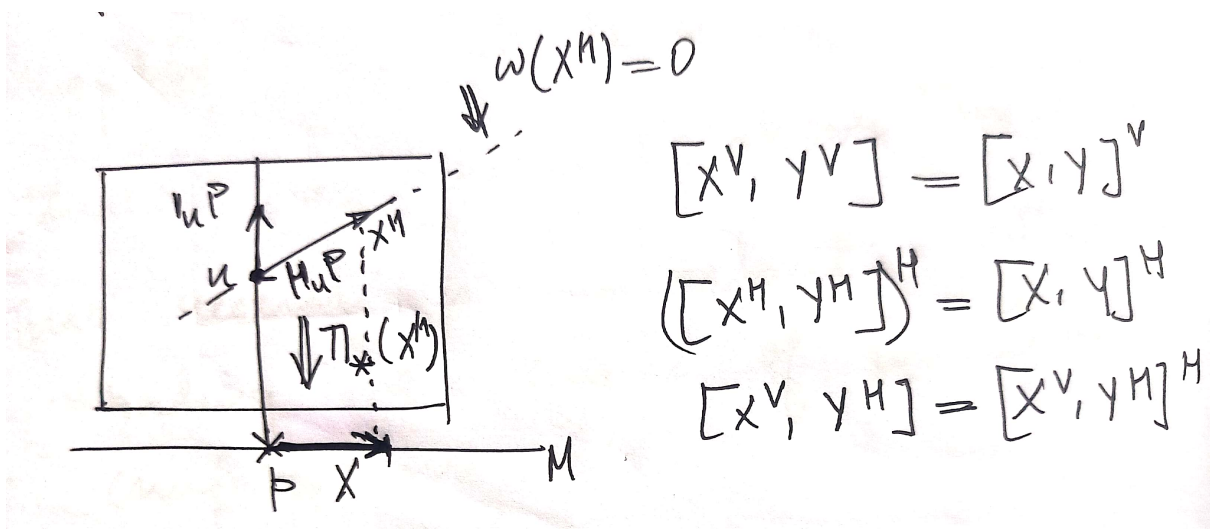 ω(X^H) = 0
V_uP
X^H
u
H_uP
π_*(X^H)
p X M
[X^V, Y^V] = [X, Y]^V
([X^H, Y^H])^H = [X, Y]^H
[X^V, Y^H] = [X^V, Y^H]^H